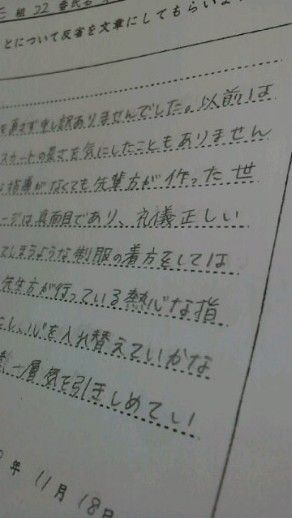 組 22 番 氏名
とについて反省を文章にしてもらいま
を直さず申し訳ありませんでした。以前は
スカートの長さを気にしたこともありません
指導がなくても先輩方が作った世
ージは真面目であり、礼儀正しい
てしまうような制服の着方をしては
先生方が行っている熱心な指
し、心を入れ替えていかな
一層気を引きしめてい
年 11月 18日